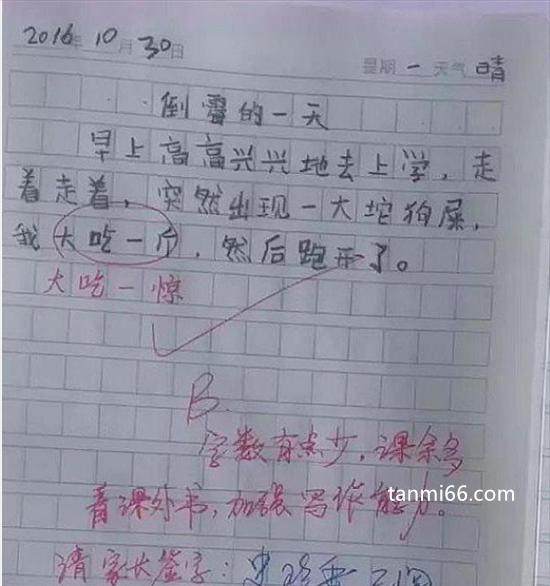 2016年10月30日 星期一 天气晴
倒霉的一天
早上高高兴兴地去上学,走
着走着,突然出现一大坨狗屎,
我大吃一斤,然后跑开了。
大吃一惊
B.
字数有点少,课余多
看课外书,加强写作能力。
tanmi66.com
请家长签字: